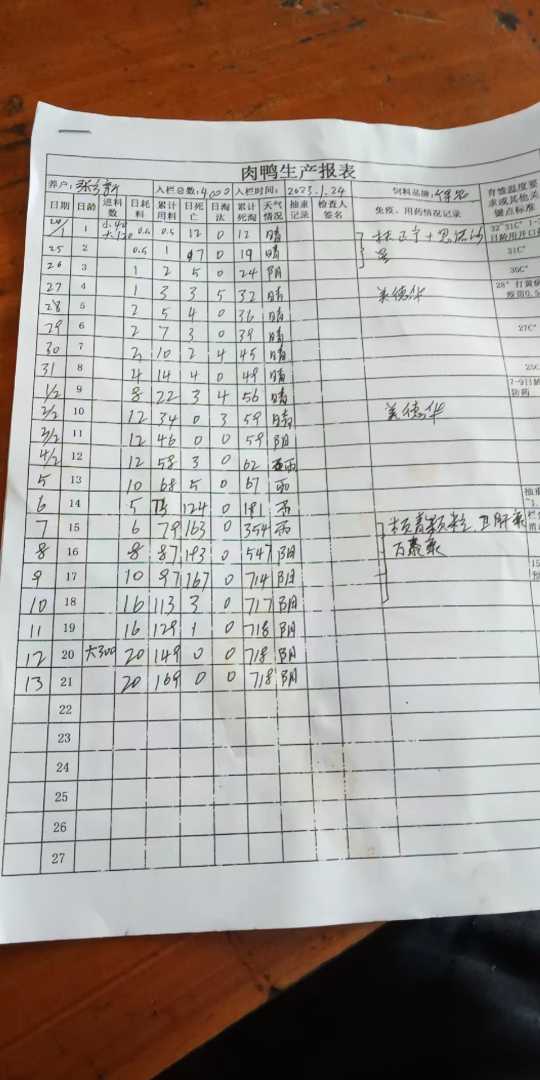 肉鸭生产报表
养户: 入栏总数:4000 入栏时间: 2023.1.24 饲料品牌: 育雏温度要
日期 日龄 进料数 日耗料 累计用料 日死亡 日淘汰 累计死淘 天气情况 抽重记录 检查人签名 免疫、用药情况记录 求或其他关键点标准
24/1 1 0.5 0.5 12 0 12 晴 32°31C°
25 2 0.5 1 7 0 19 晴 31C°
26 3 1 2 5 0 24 阴 30C°
27 4 1 3 3 5 32 晴 美德华 28°
28 5 2 5 4 0 36 晴
29 6 2 7 3 0 39 晴 27C°
30 7 3 10 2 4 45 晴
31 8 4 14 4 0 49 晴
1/2 9 8 22 3 4 56 晴 7-9日
2/2 10 12 34 0 3 59 晴 美德华 防药
3/2 11 12 46 0 0 59 阴
4/2 12 12 58 3 0 62 雨
5 13 10 68 5 0 67 雨
6 14 5 73 124 0 191 雨
7 15 6 79 163 0 354 雨
8 16 8 87 193 0 547 阴
9 17 10 97 167 0 714 阴
10 18 16 113 3 0 717 阴
11 19 16 129 1 0 718 阴
12 20 大300 20 149 0 0 718 阴
13 21 20 169 0 0 718 阴
22
23
24
25
26
27